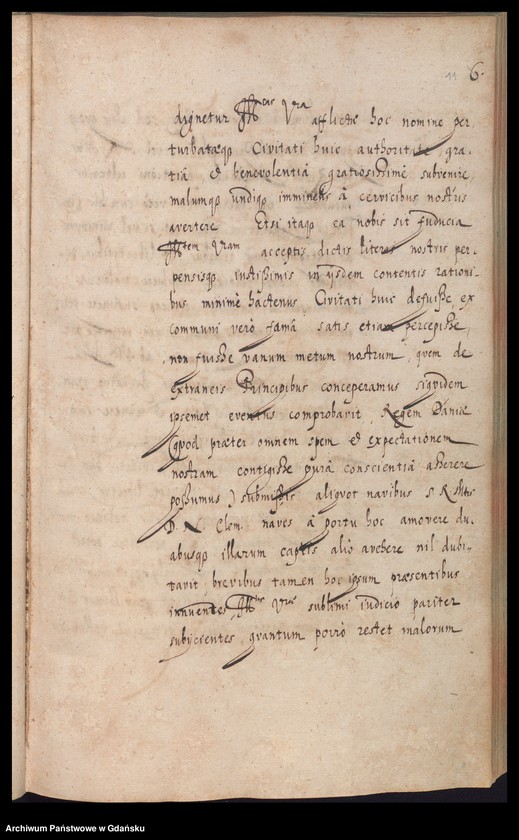 11 6.
dignetur Mtas Vra afflictæ hoc nomine per
turbatæq3 Civitati huic authoritate gra-
tiâ et benevolentiâ gratiosissimè subvenire
malumq3 undiq3 imminens à cervicibus nostris
avertere Etsi itaq3 ea nobis sit fiducia
Mtem Vram acceptis dictis literis nostris per-
pensisq3 iustissimis in ijsdem contentis rationi-
bus minimè hactenus Civitati huic defuisse ex
communi verò famâ satis etiam percepisse,
non fuisse vanum metum nostrum, quem de
extraneis Principibus conceperamus siquidem
ipsemet eventus comprobavit, Regem Daniæ
(quod præter omnem spem et expectationem
nostram contigisse purâ conscientiâ asserere
possumus) submissis aliquot navibus S. R. Mtis
D. N. Clem. naves à portu hoc amovere du-
abusq3 illarum captis aliò avehere nil dubi-
tavit brevibus tamen hoc ipsum præsentibus
innuentes, Mtis Vræ sublimi iudicio pariter
subijcientes, quantum porrò restet malorum
Archiwum Państwowe w Gdańsku